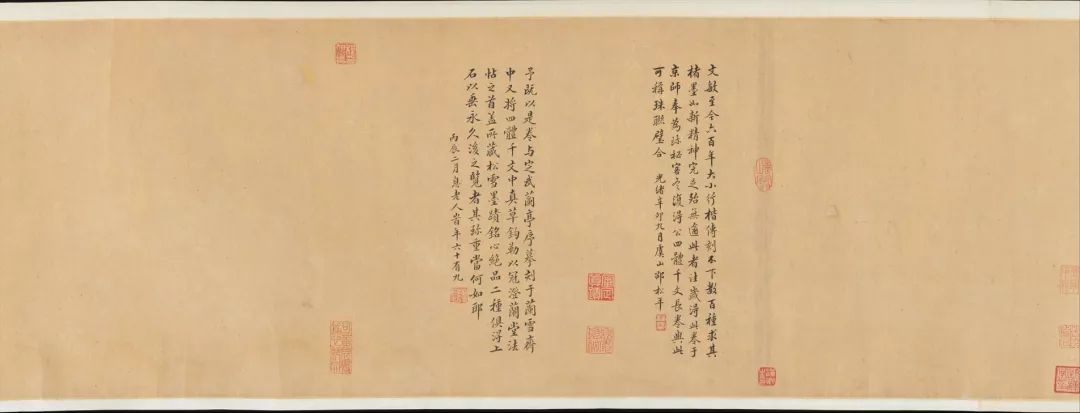 文敏至今六百年大小行楷傳刻不下數百種求其
楮墨如新精神完足殆無過此者往歲得此卷于
京師奉為珍秘客冬復得公四體千文長卷與此
可稱珠聯璧合 光緒辛卯九月虞山邵松年
予既以是卷与定武蘭亭序摹刻于蘭雪齋
中又將四體千文中真草鉤勒以冠澄蘭堂法
帖之首蓋所藏松雪墨蹟銘心絕品二種俱得上
石以垂永久後之覽者其珍重當何如耶
丙辰二月息老人當年六十有九